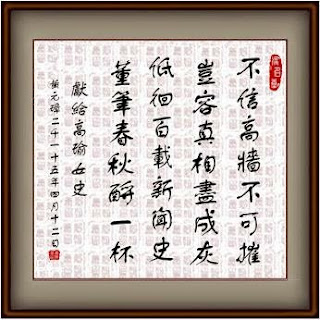 不信高牆不可摧
豈容真相盡成灰
低徊百載新聞史
董筆春秋酹一杯
獻給高瑜女史
二千一十五年四月十二日